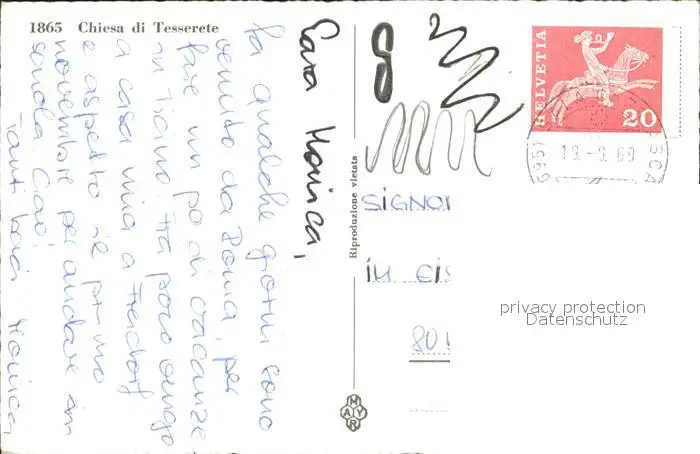 1865 Chiesa di Tesserete
Cara Monica,
fa qualche giorni sono
venuto da Roma, per
fare un po di vacanze
in Ticino. Fra poco vengo
a casa mia a Freidorf
e aspetto il primo
novembre per andare in
scuola. Ciao!
Tanti baci Monica
Riproduzione vietata
MAYR
8
HELVETIA
20
695
19.-9.69
SCA
SIGNO
in
80
privacy protection
Datenschutz